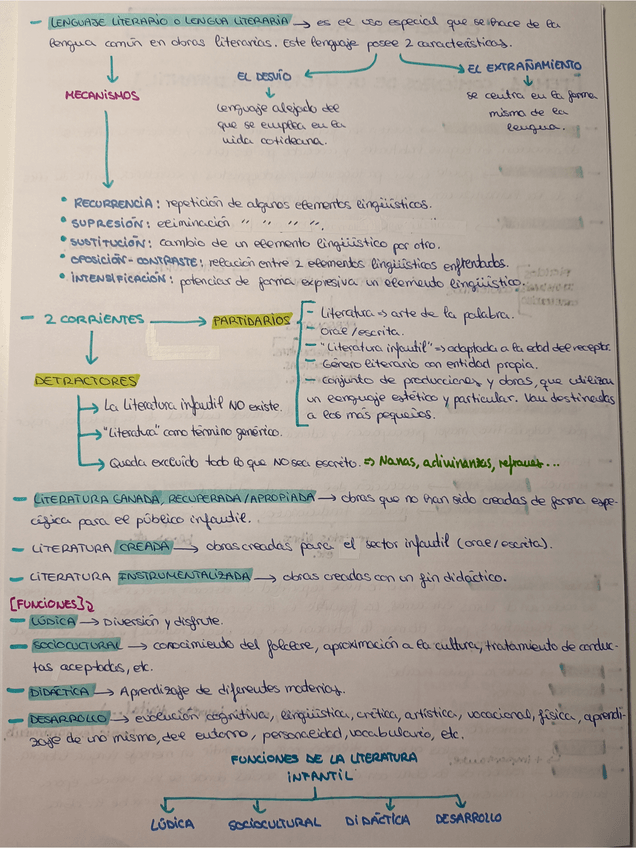 – LENGUAJE LITERARIO O LENGUA LITERARIA → es el uso especial que se hace de la
lengua común en obras literarias. Este lenguaje posee 2 características.
MECANISMOS
EL DESVÍO
EL EXTRAÑAMIENTO
lenguaje alejado del
que se emplea en la
vida cotidiana.
se centra en la forma
misma de la
lengua.
• RECURRENCIA: repetición de algunos elementos lingüísticos.
• SUPRESIÓN: eliminación " " " ".
• SUSTITUCIÓN: cambio de un elemento lingüístico por otro.
• OPOSICIÓN-CONTRASTE: relación entre 2 elementos lingüísticos enfrentados.
• INTENSIFICACIÓN: potenciar de forma expresiva un elemento lingüístico.
– 2 CORRIENTES → PARTIDARIOS
– Literatura => arte de la palabra.
– Oral/escrita.
– "Literatura infantil" => adaptada a la edad del receptor.
– Género literario con entidad propia.
– conjunto de producciones y obras, que utilizan
un lenguaje estético y particular. Van destinadas
a los más pequeños.
DETRACTORES
→ La literatura infantil NO existe.
→ "Literatura" como término genérico.
→ Queda excluido todo lo que NO sea escrito. => Nanas, adivinanzas, refranes...
– LITERATURA GANADA, RECUPERADA/APROPIADA → obras que no han sido creadas de forma espe-
cífica para el público infantil.
– LITERATURA CREADA → obras creadas para el sector infantil (oral/escrita).
– LITERATURA INSTRUMENTALIZADA → obras creadas con un fin didáctico.
[FUNCIONES]
– LÚDICA → Diversión y disfrute.
– SOCIOCULTURAL → conocimiento del folclore, aproximación a la cultura, tratamiento de conduc-
tas aceptadas, etc.
– DIDÁCTICA → Aprendizaje de diferentes materias.
– DESARROLLO → evolución cognitiva, lingüística, crítica, artística, vocacional, física, aprendi-
zaje de uno mismo, del entorno, personalidad, vocabulario, etc.
FUNCIONES DE LA LITERATURA
INFANTIL
LÚDICA SOCIOCULTURAL DIDÁCTICA DESARROLLO